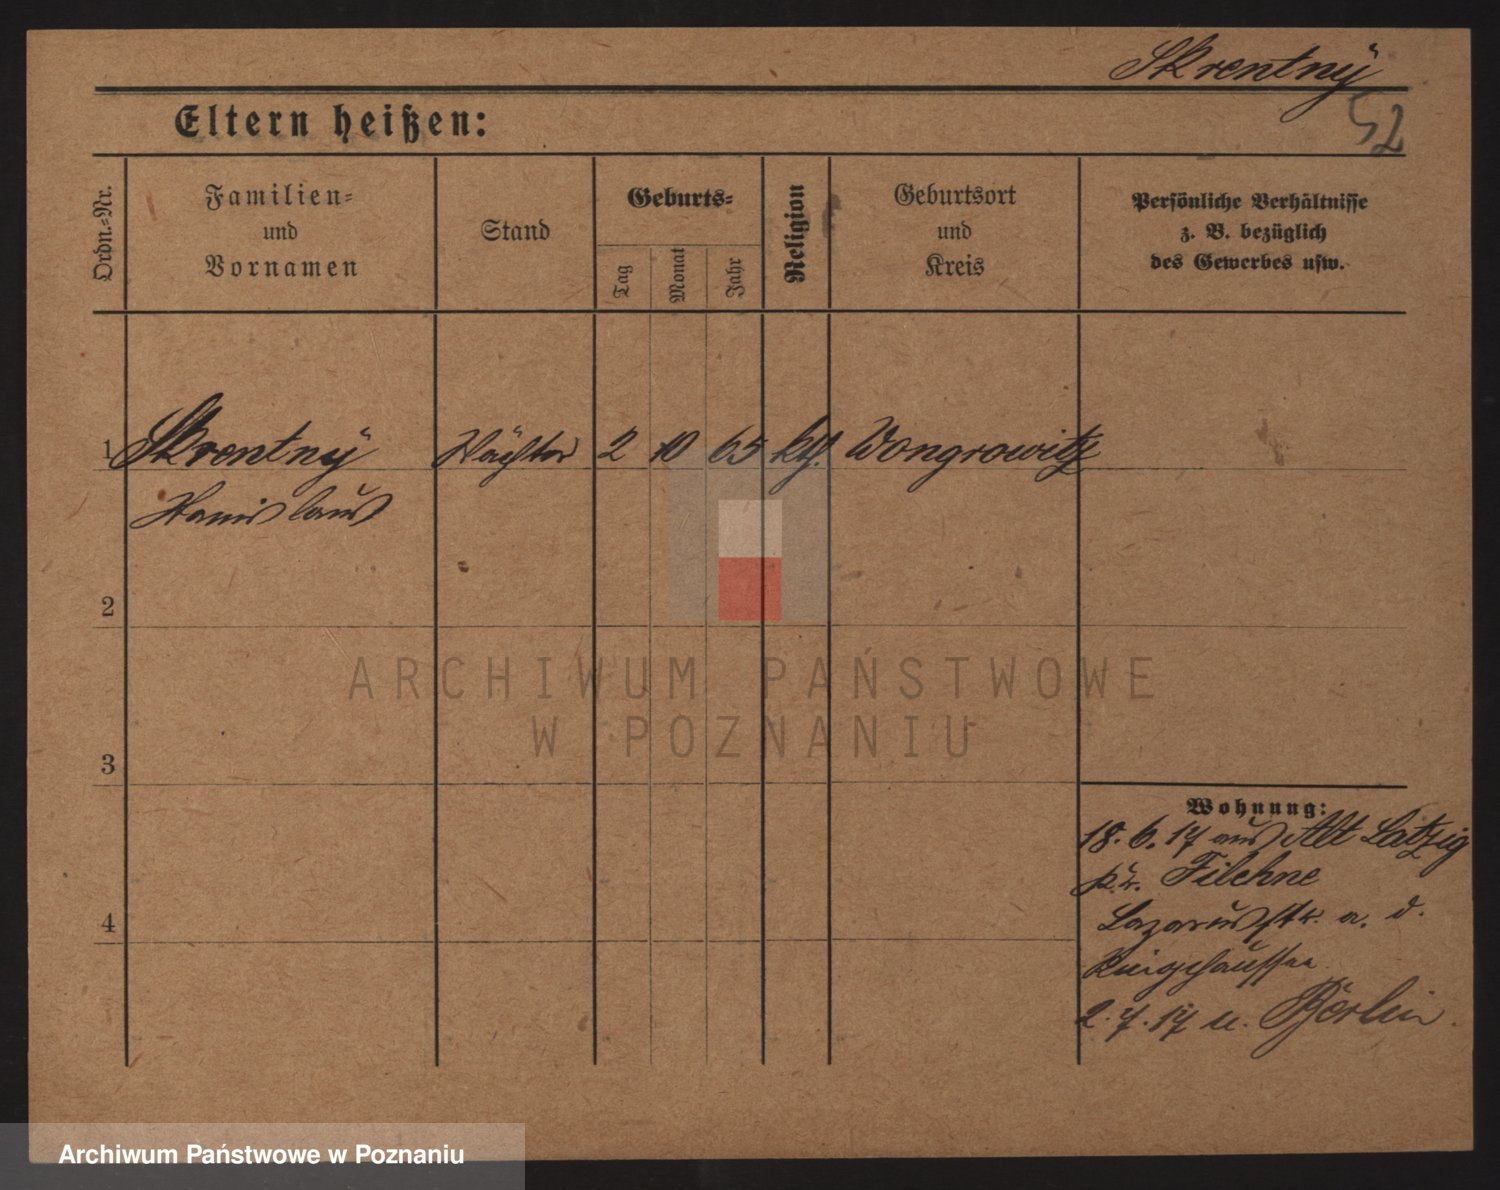 Skrentnÿ
52
Eltern heißen:
Ordn.-Nr.
Familien-
und
Vornamen
Stand
Geburts-
Tag
Monat
Jahr
Religion
Geburtsort
und
Kreis
Persönliche Verhältnisse
z. B. bezüglich
des Gewerbes usw.
1 Skrentnÿ Wächter 2 10 65 kth. Wongrowitz
Stanislaus
2
3
4
Wohnung:
18.6.17 aus Alt Latzig
Kr. Filehne
Lazarusstr. a. d.
Ringchaussee
2.7.17 n. Berlin.
ARCHIWUM PAŃSTWOWE
W POZNANIU
Archiwum Państwowe w Poznaniu